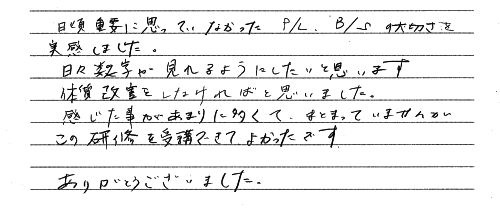 日頃重要に思っていなかった P/L、B/Sの大切さを
実感しました。
日々数字が見れるようにしたいと思います
体質改善をしなければと思いました。
感じた事があまりに多くて、まとまっていませんが
この研修を受講できてよかったです
ありがとうございました。